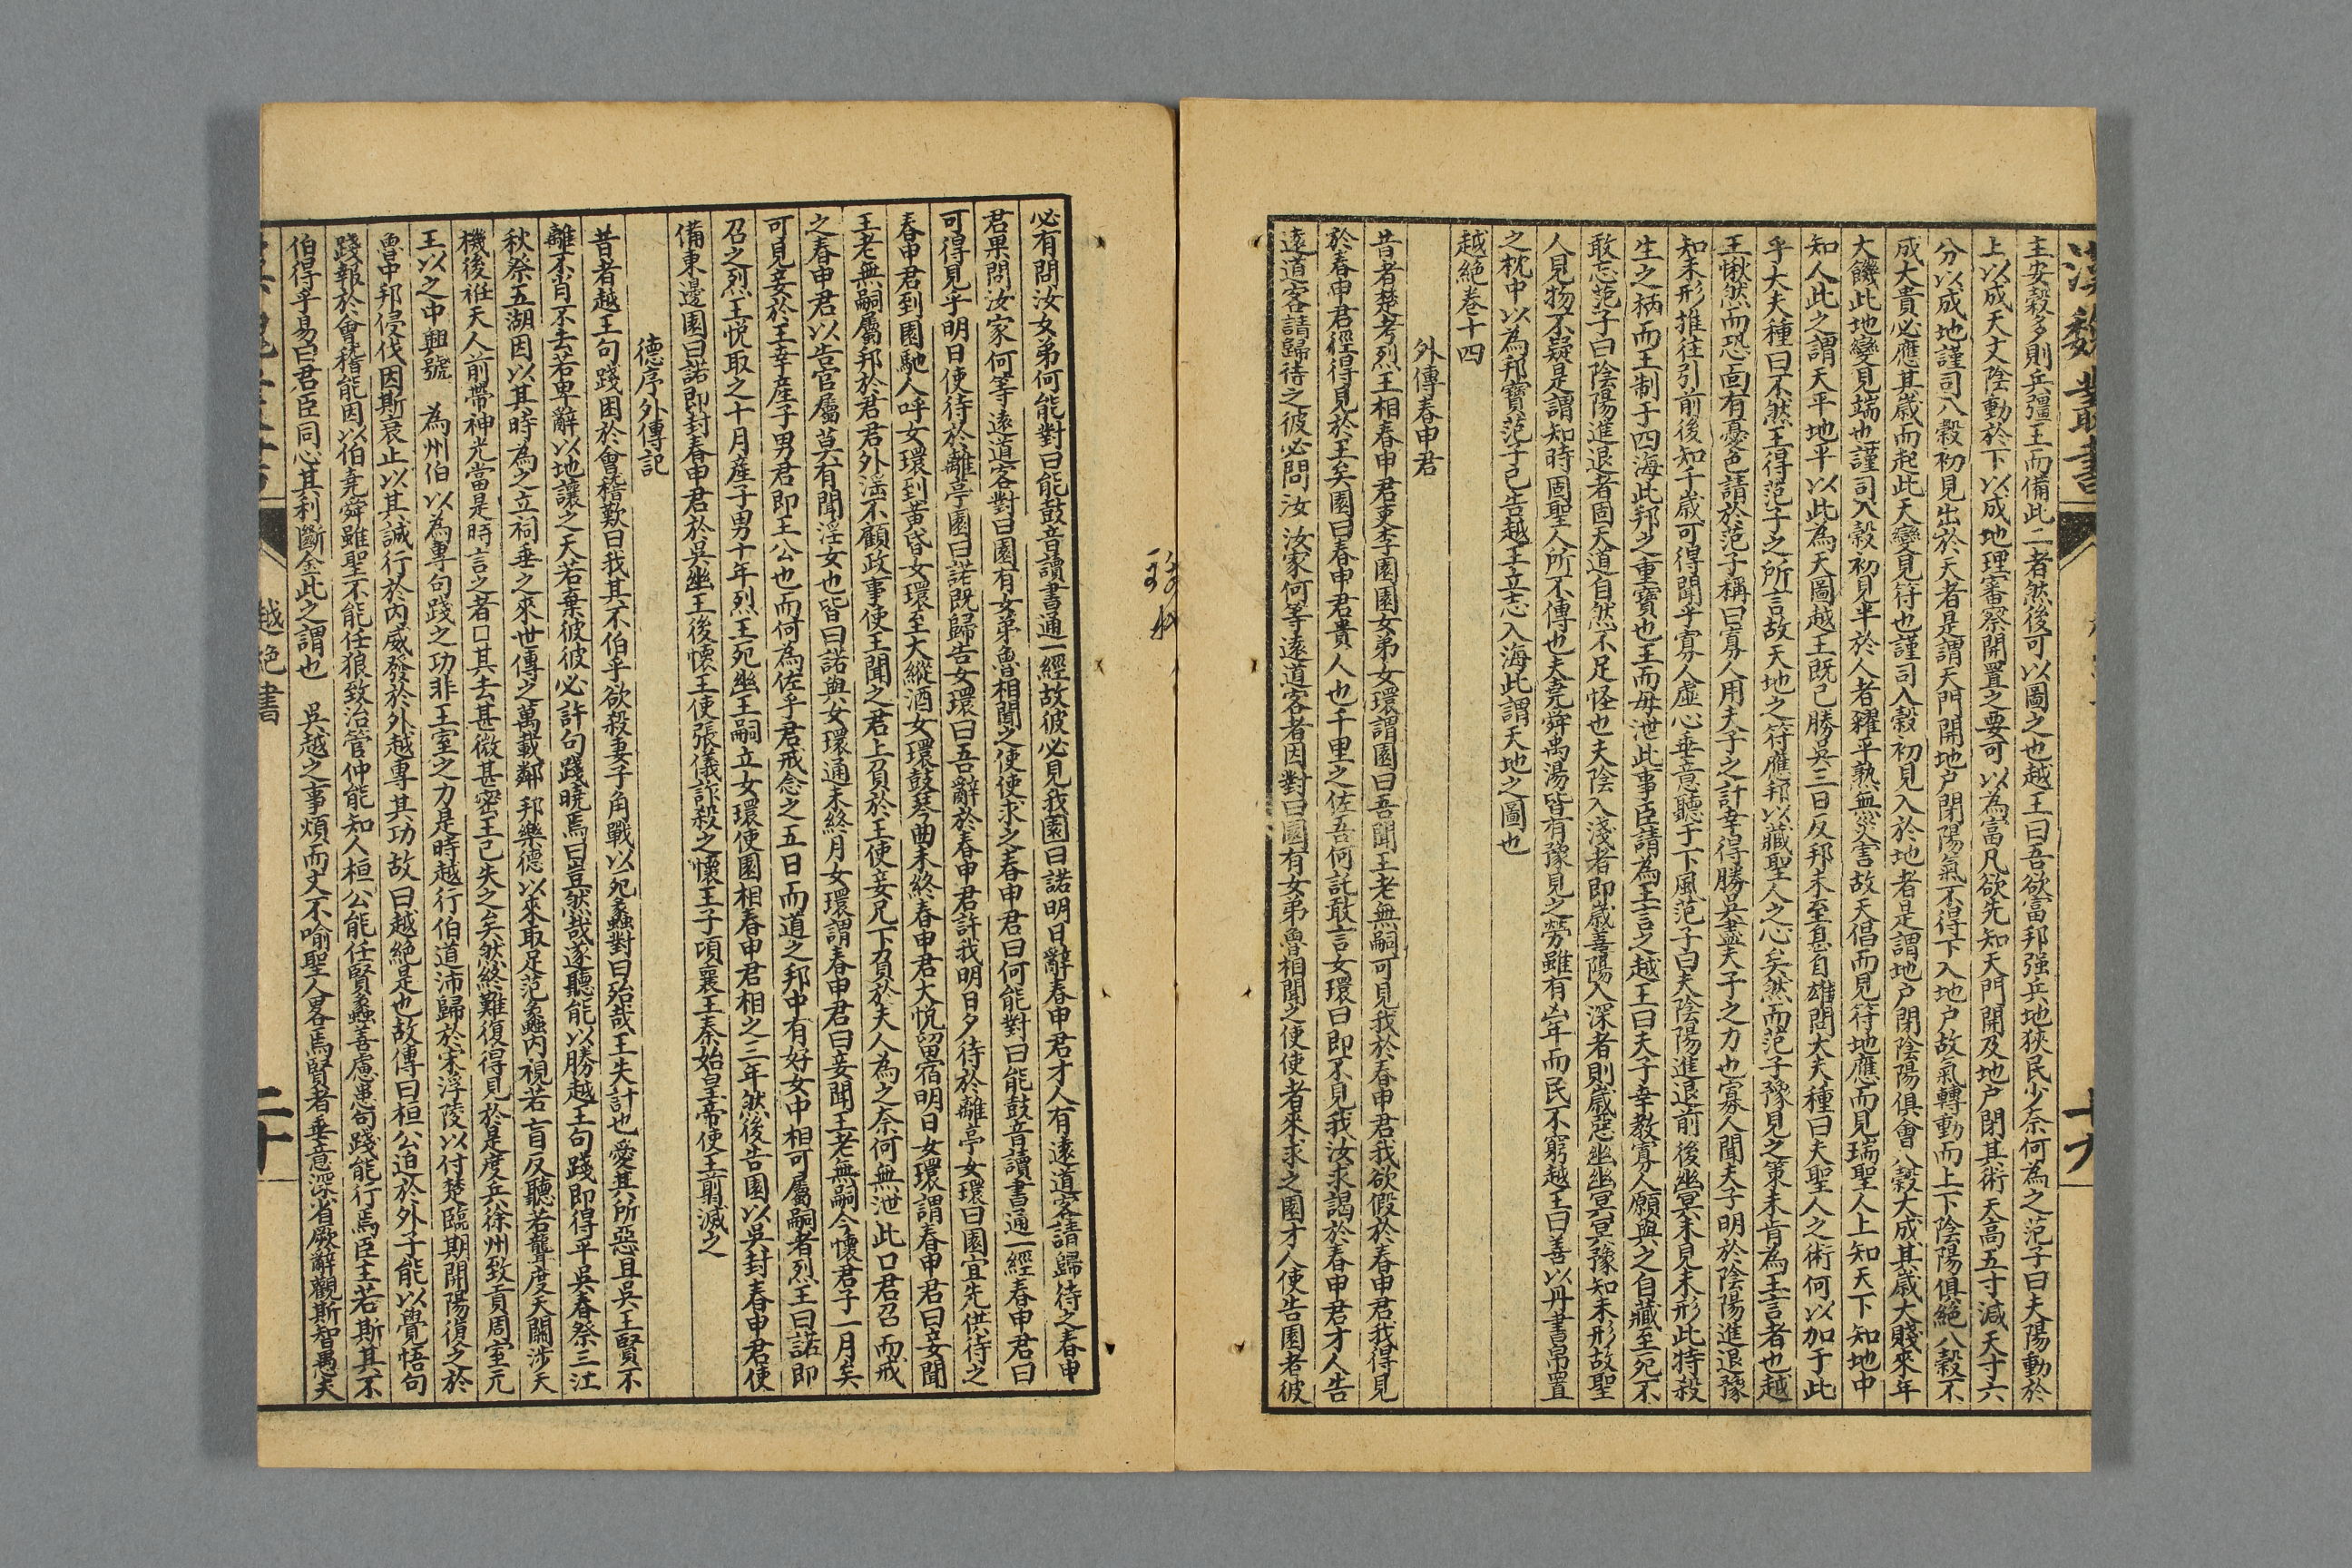 漢魏叢書
十九
主安穀多則兵彊王而備此二者然後可以圖之也越王曰吾欲富邦強兵地狹民少奈何為之范子曰夫陽動於
上以成天文陰動於下以成地理審察開置之要可以為富凡欲先知天門開及地戶閉其術天高五寸減天寸六
分以成地謹司八穀初見出於天者是謂天門開地戶閉陽氣不得下入地戶故氣轉動而上下陰陽俱絕八穀不
成大貴必應其歲而起此天變見符也謹司八穀初見入於地者是謂地戶閉陰陽俱會八穀大成其歲大賤來年
大饑此地變見端也謹司八穀初見半於人者糴平熟無災害故天倡而見符地應而見瑞聖人上知天下知地中
知人此之謂天平地平以此為天圖越王既已勝吳三日反邦未至息自雄問大夫種曰夫聖人之術何以加于此
乎大夫種曰不然王得范子之所言故天地之符應邦以藏聖人之心矣然而范子豫見之策未肯為王言者也越
王愀然而恐面有憂色請於范子稱曰寡人用夫子之計幸得勝吳盡夫子之力也寡人聞夫子明於陰陽進退豫
知未形推往引前後知千歲可得聞乎寡人虛心垂意聽于下風范子曰夫陰陽進退前後幽冥未見未形此持殺
生之柄而王制于四海此邦之重寶也王而毋泄此事臣請為王言之越王曰夫子幸教寡人願與之自藏至死不
敢忘范子曰陰陽進退者固天道自然不足怪也夫陰入淺者即歲善陽入深者則歲惡幽幽冥冥豫知未形故聖
人見物不疑是謂知時固聖人所不傳也夫堯舜禹湯皆有豫見之勞雖有凶年而民不窮越王曰善以丹書帛置
之枕中以為邦寶范子已告越王立志入海此謂天地之圖也
越絕卷十四
外傳春申君
昔者楚考烈王相春申君吏李園園女弟女環謂園曰吾聞王老無嗣可見我於春申君我欲假於春申君我得見
於春申君徑得見於王矣園曰春申君貴人也千里之佐吾何託敢言女環曰即不見我汝求謁於春申君才人告
遠道客請歸待之彼必問汝汝家何等遠道客者因對曰園有女弟魯相聞之使使者來求之園才人使告園者彼
必有問汝女弟何能對曰能鼓音讀書通一經故彼必見我園曰諾明日辭春申君才人有遠道客請歸待之春申
君果問汝家何等遠道客對曰園有女弟魯相聞之使使求之春申君曰何能對曰能鼓音讀書通一經春申君曰
可得見乎明日使待於離亭園曰諾既歸告女環曰吾辭於春申君許我明日夕待於離亭女環曰園宜先供待之
春申君到園馳人呼女環到黃昏女環至大縱酒女環鼓琴曲未終春申君大悅留宿明日女環謂春申君曰妾聞
王老無嗣屬邦於君君外淫不顧政事使王聞之君上負於王使妾兄下負於夫人為之奈何無泄此口君召而戒
之春申君以告官屬莫有聞淫女也皆曰諾與女環通未終月女環謂春申君曰妾聞王老無嗣今懷君子一月矣
可見妾於王幸產子男君即王公也而何為佐乎君戒念之五日而道之邦中有好女中相可屬嗣者烈王曰諾即
召之烈王悅取之十月產子男十年烈王死幽王嗣立女環使園相春申君相之三年然後告園以吳封春申君使
備東邊園曰諾即封春申君於吳幽王後懷王使張儀詐殺之懷王子頃襄王秦始皇帝使王翦滅之
德序外傳記
昔者越王句踐困於會稽歎曰我其不伯乎欲殺妻子角戰以死蠡對曰殆哉王失計也愛其所惡且吳王賢不
離不肖不去若卑辭以地讓之天若棄彼彼必許句踐曉焉曰豈然哉遂聽能以勝越王句踐即得平吳春祭三江
秋祭五湖因以其時為之立祠垂之來世傳之萬載鄰邦樂德以來取足范蠡內視若盲反聽若聾度天關涉天
機後袵天人前帶神光當是時言之者□其去甚微甚密王已失之矣然終難復得見於是度兵徐州致貢周室元
王以之中興號　為州伯以為專句踐之功非王室之力是時越行伯道沛歸於宋浮陵以付楚臨期開陽復之於
魯中邦侵伐因斯衰止以其誠行於內威發於外越專其功故曰越絕是也故傳曰桓公迫於外子能以覺悟句
踐報於會稽能因以伯堯舜雖聖不能任狼致治管仲能知人桓公能任賢蠡善慮患句踐能行焉臣主若斯其不
伯得乎易曰君臣同心其利斷金此之謂也　吳越之事煩而文不喻聖人畧焉賢者垂意深省厥辭觀斯智愚夫
越絕書
二十